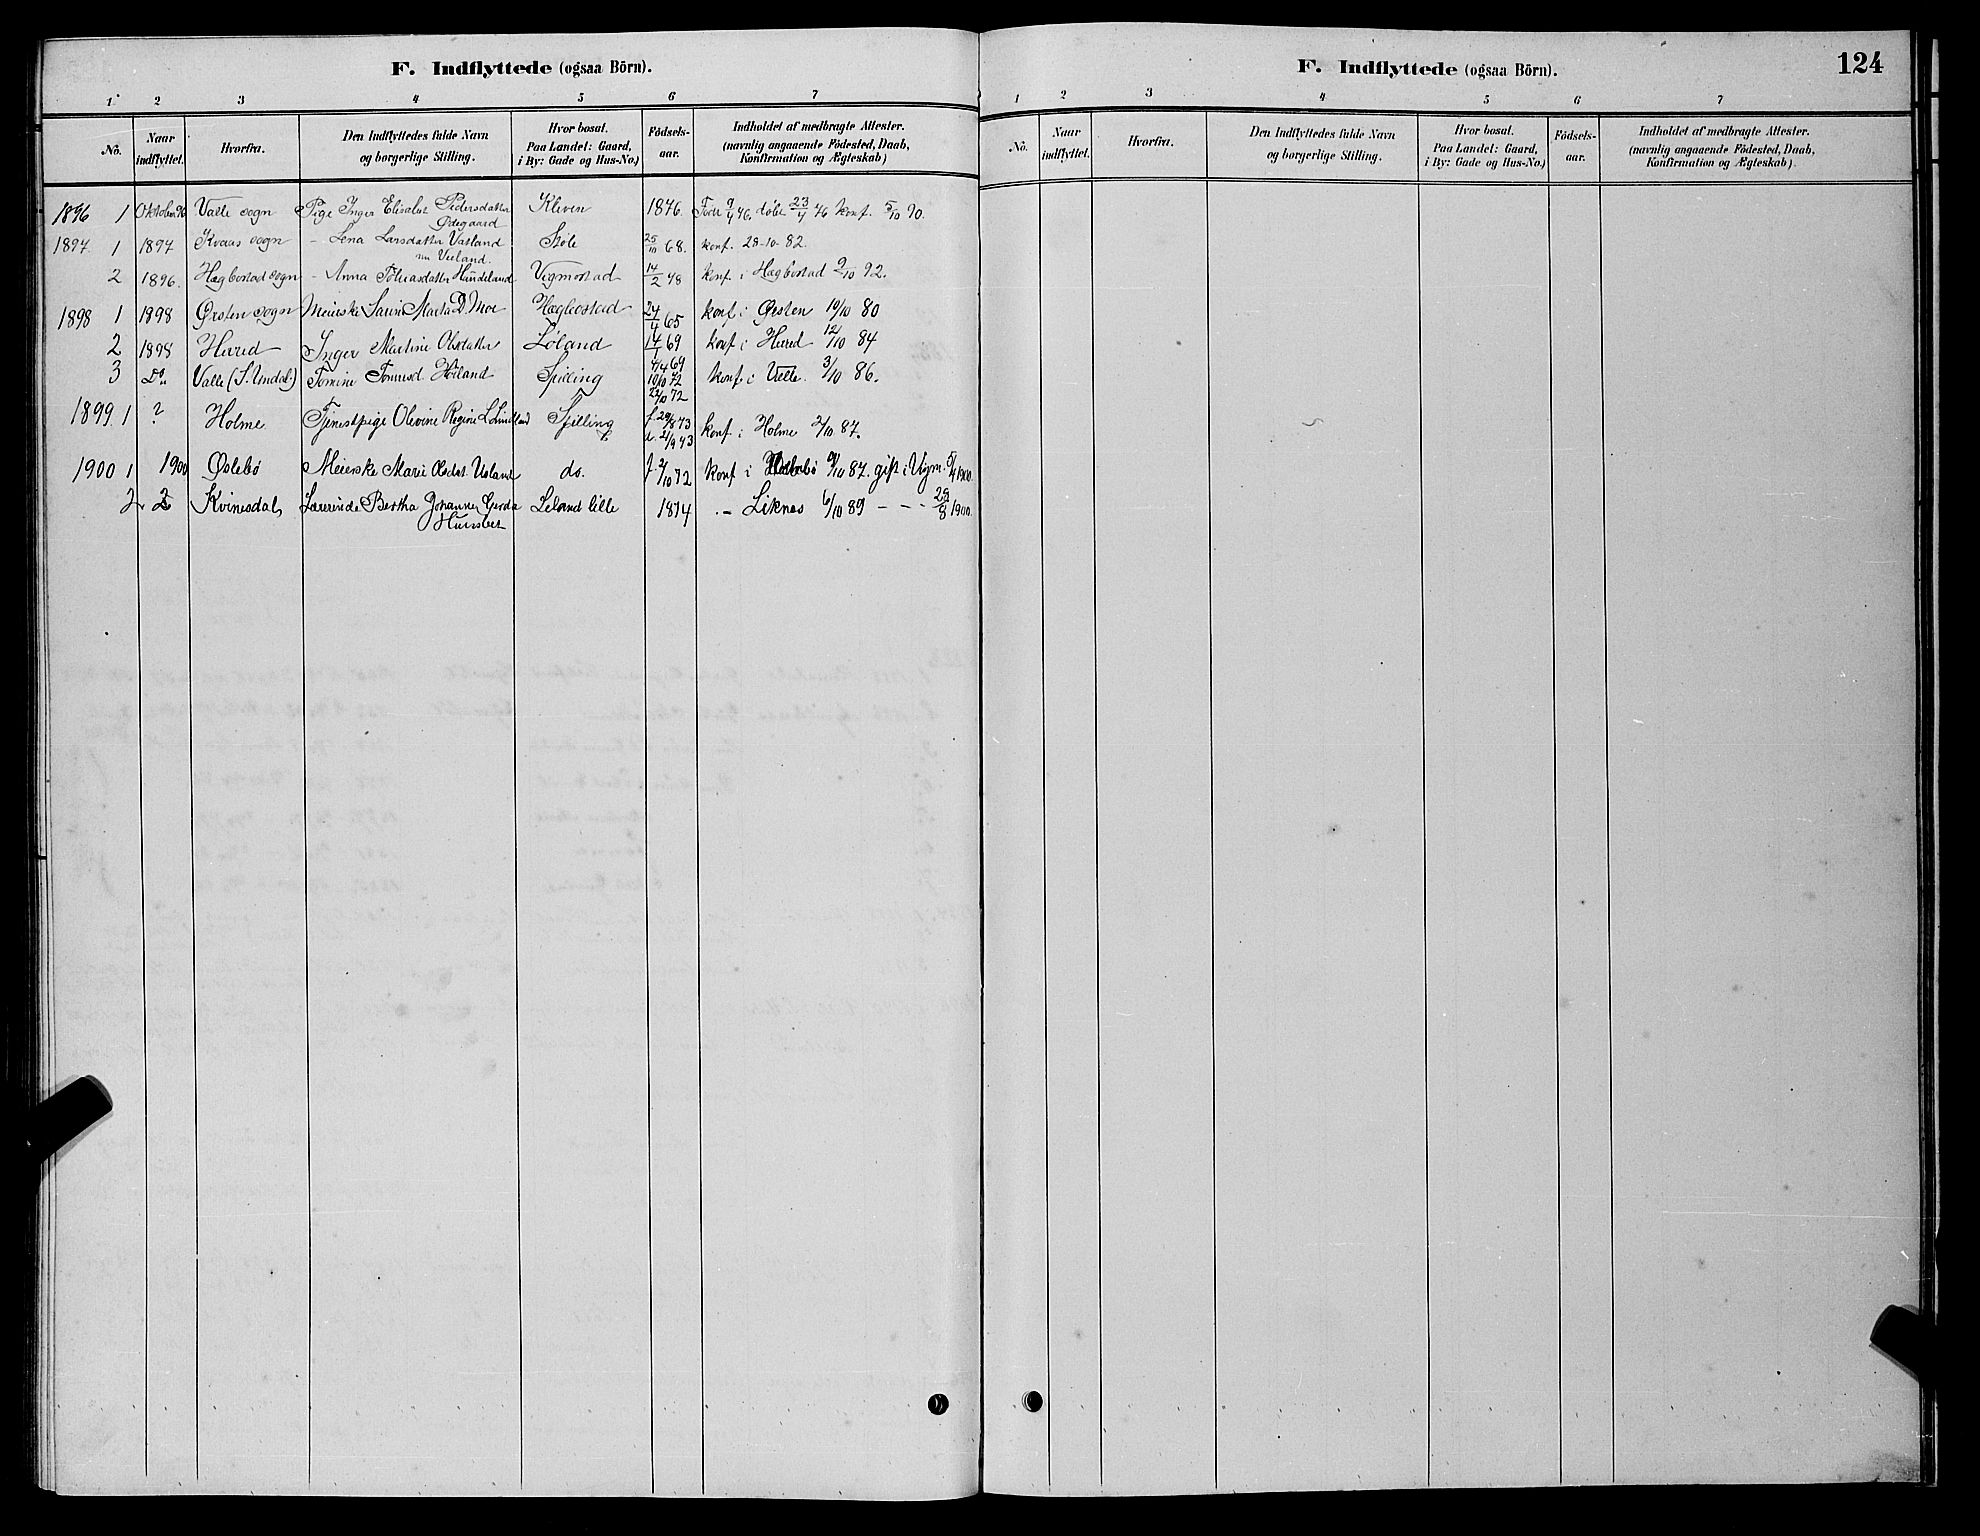 F. Indflyttede (ogsaa Börn).
1 2 3 4 5 6 7
No. Naar indflyttet. Hvorfra. Den Indflyttedes fulde Navn og borgerlige Stilling. Hvor bosat. Paa Landet: Gaard, i By: Gade og Hus-No.) Födsels-aar. Indholdet af medbragte Attester. (navnlig angaaende Födested, Daab, Konfirmation og Ægteskab)
1896 1 Oktober 96 Valle sogn Pige Inger Elisabet Pedersdatter Kleven 1876. Föde 9/4 76. döbt 23/4 76 konf. 5/10 90.
Ödegaard
1897 1 1897 Kvaas sogn - Lena Larsdatter Vatland Stöle 25/10 68. konf. 28-10-82.
2 1896. Hægbostad sogn - Anna Tobiasdatter Hundeland Vigmostad 14/2 78 konf. i Hægbostad 9/10 92.
1898 1 1898 Örsten sogn Meierske Marta D. Moe Hægbostad 24/4 65 konf. i Örsten 10/10 80
2 1898 Hered Inger Martine Olsdatter Löland 14/1 69 konf. i Hered 12/10 84
3 Do. Valle (S. Undal.) Tomine Tönnesd. Höiland Spilling 10/10 72 konf. i Valle. 3/10 86.
22/10 72
1899. 1 ? Holme Tjenestpige Olevine Regine L. Lindland Spilling f. 29/8 73 konf. i Holme 2/10 87.
d. 21/9 73
1900 1 1900 Öslebö Meierske Marie Olsdat. Usland do. f. 2/10 72 konf i 9/10 87. gift i Vigm. 5/4 1900.
2 2 Kvinesdal Lærerinde Bertha Johanne Gerda Leland lille 1874 .- Liknes 6/10 89 - - - 29/8 1900.
F. Indflyttede (ogsaa Börn).
124
1 2 3 4 5 6 7
No. Naar indflyttet. Hvorfra. Den Indflyttedes fulde Navn og borgerlige Stilling. Hvor bosat. Paa Landet: Gaard, i By: Gade og Hus-No.) Födsels-aar. Indholdet af medbragte Attester. (navnlig angaaende Födested, Daab, Konfirmation og Ægteskab)